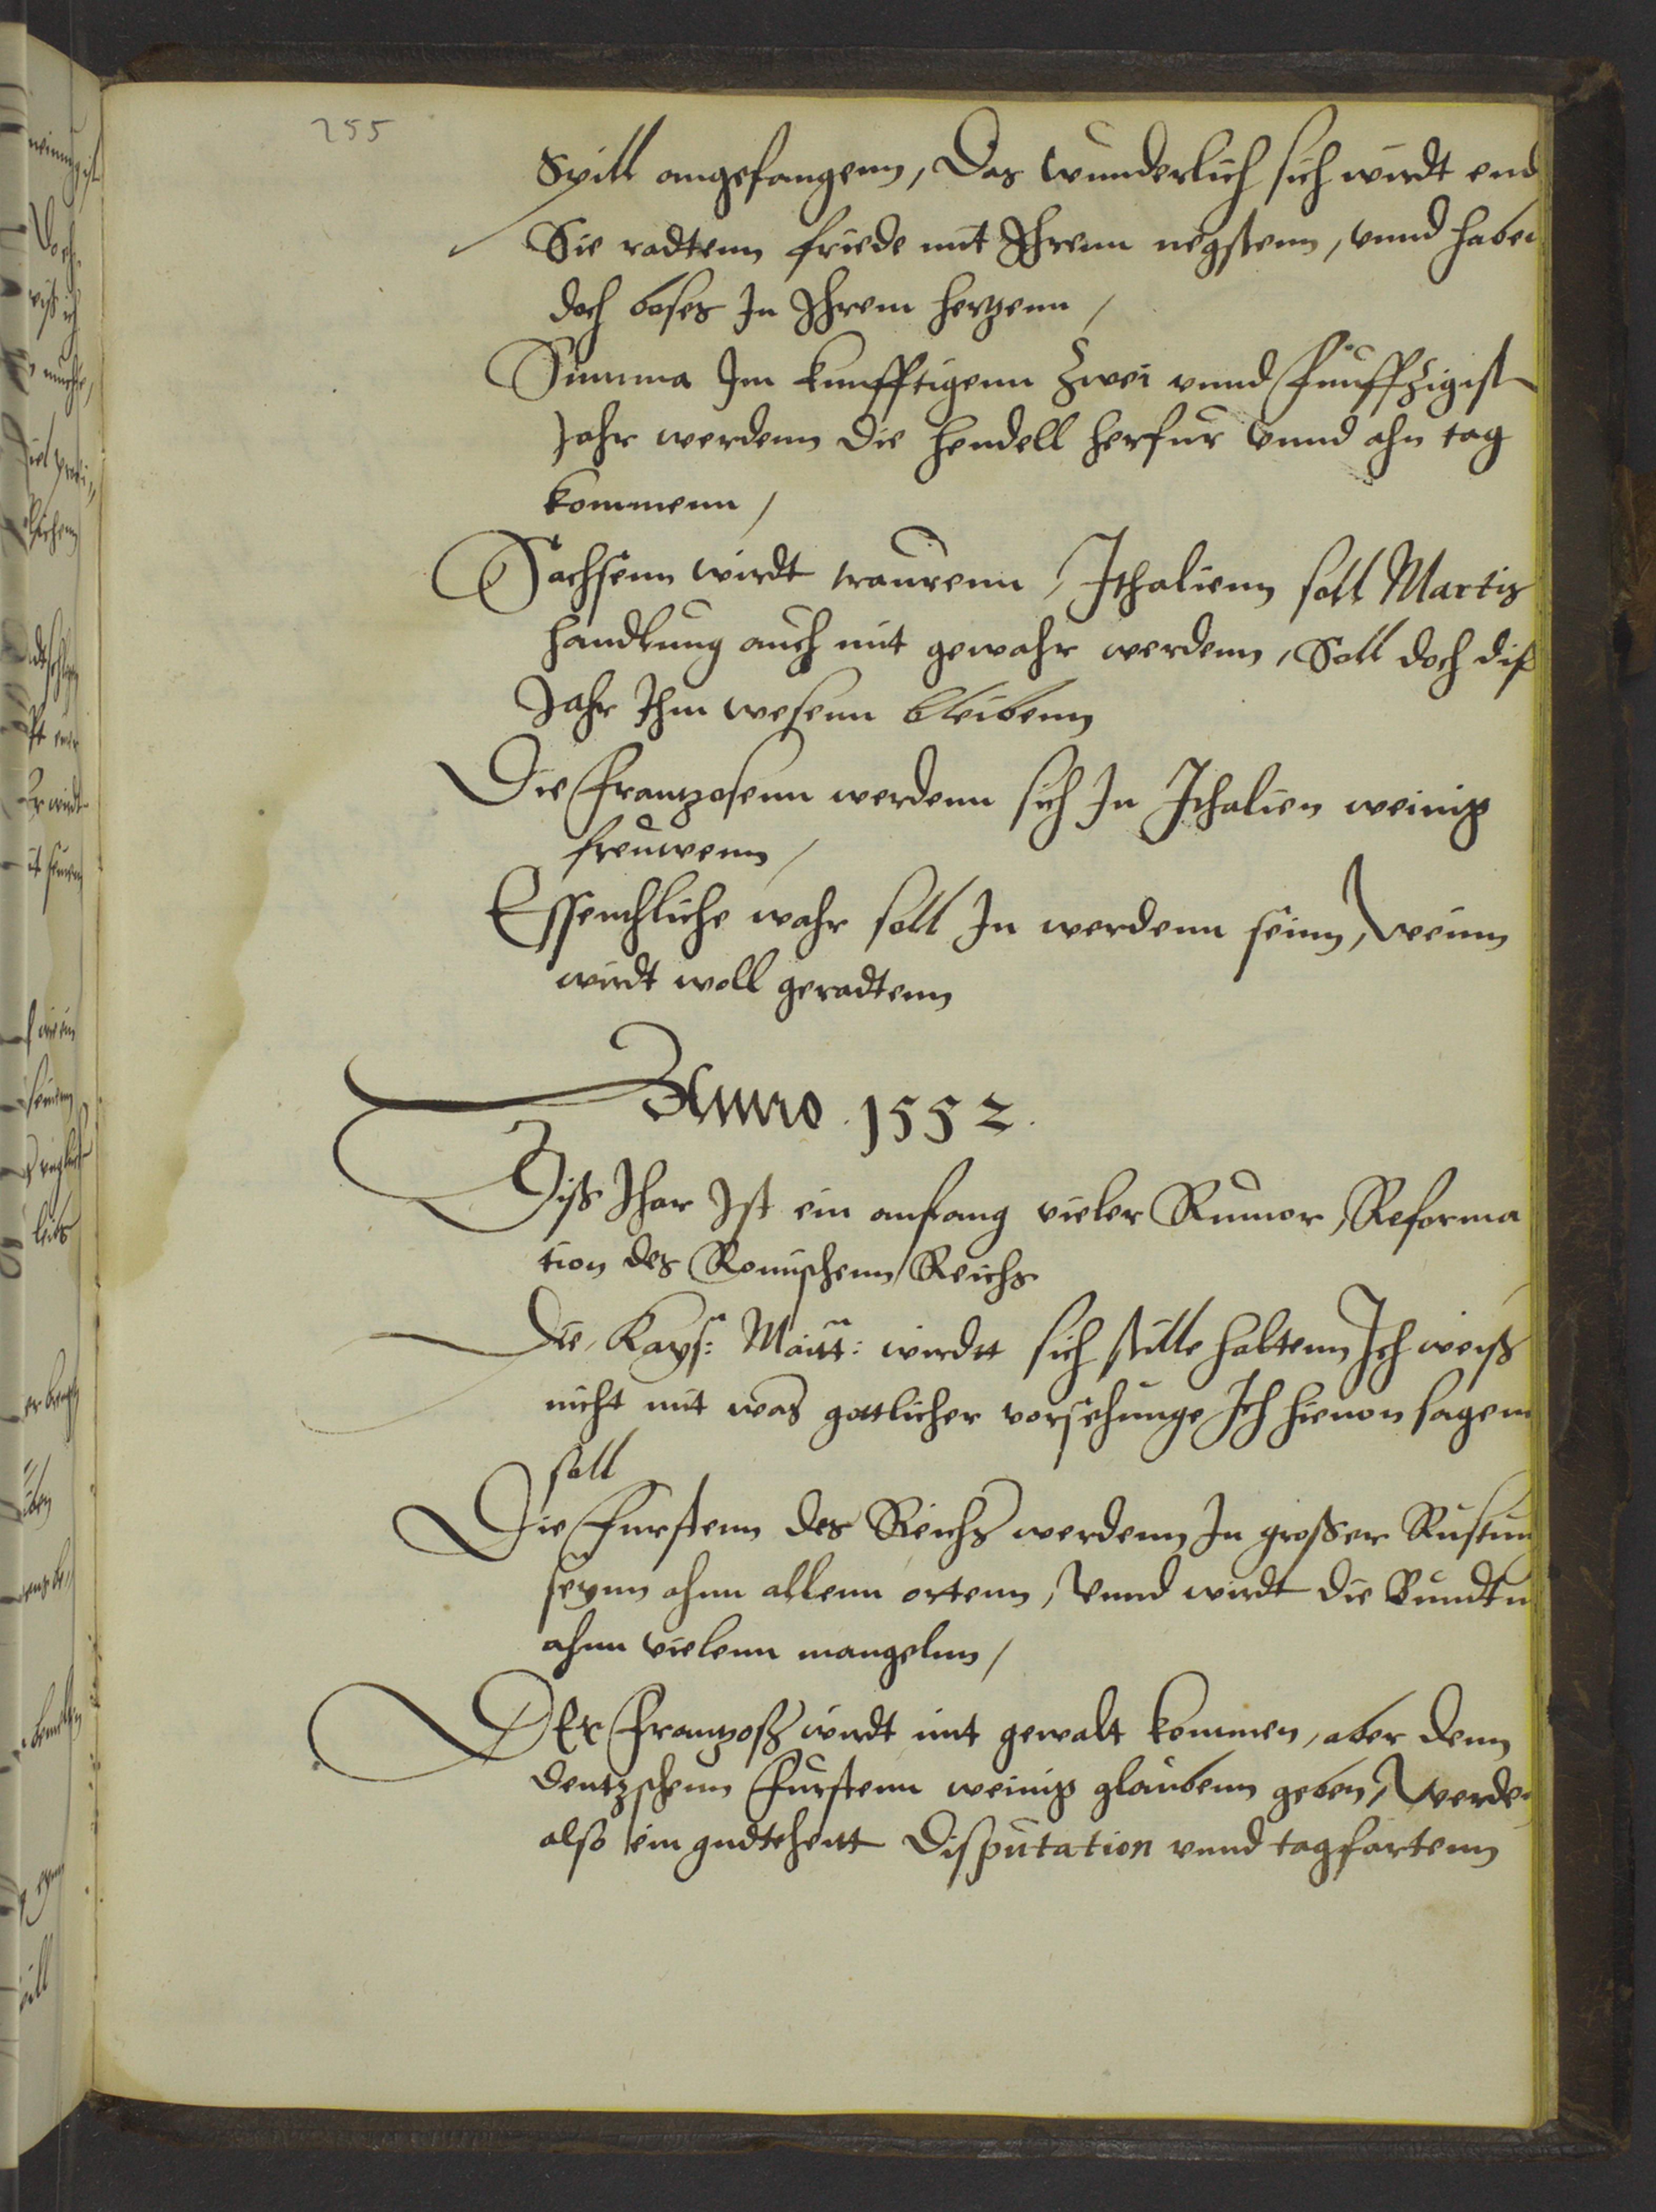 255
Spill angefangenn, Das wunderlich sich wirdt end
Sie radtenn friede mit Ihrenn negstenn, vnnd haben
doch boses In Ihrem hertzenn /
Summa Im kunfftigenn zwei vnnd funffzigist
Jahr werdenn die hendell herfur vnnd ahn tag
kommenn /
Sachsenn wirdt traurenn / Ithalienn soll Martis
handlung auch mit gewahr werdenn, Soll doch diß
Jahr Ihm wesenn bleibenn
Die Frantzosenn werdenn sich In Ithalien weinig
freuwenn /
Essenthliche wahr soll In werdenn seinn, Weinn
wirdt woll geradtenn
Anno 1552.
Diß Jhar Ist ein anfang vieler Rumor, Reforma
tion des Romischenn Reichs
Die Kays: Maitt: wirdtt sich stille haltenn Ich weiß
nicht mit was gottlicher vorsehunge Ich hieuon sagenn
soll
Die Furstenn des Reichs werdenn In grosser Rustun
seynn ahnn allenn ortenn, Vnnd wirdt die Bundtn
ahnn vielenn mangelnn /
DEr Frantzoß wirdt mit gewalt kommen, aber denn
deutzschenn Furstenn weinig glaubenn geben, Werden
also ein Disputation vnnd tagfartenn